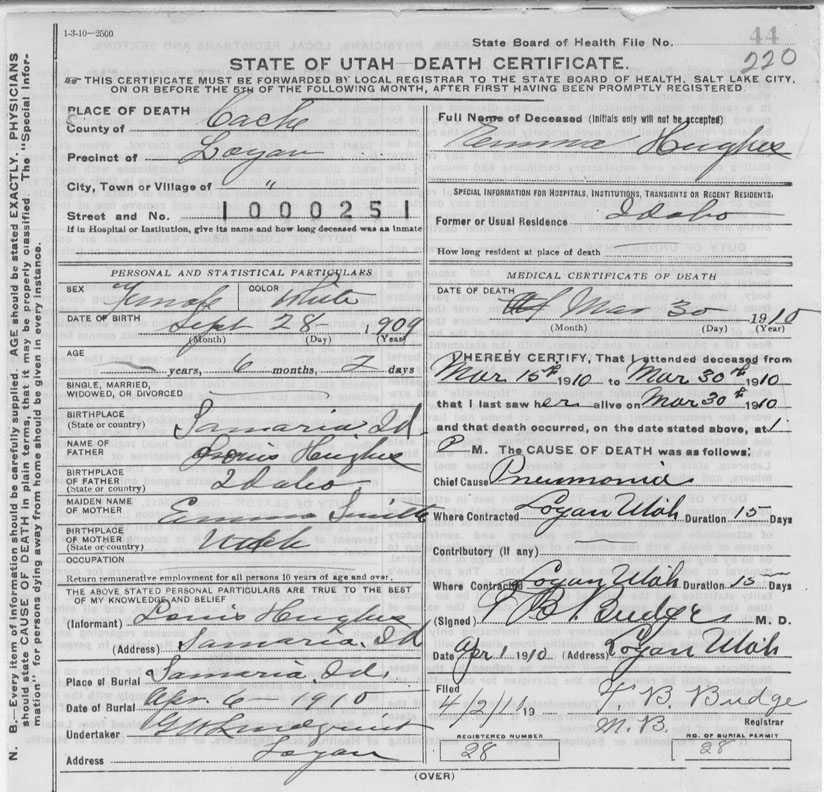 1-3-10-2500
State Board of Health File No. 44
220
STATE OF UTAH—DEATH CERTIFICATE.
THIS CERTIFICATE MUST BE FORWARDED BY LOCAL REGISTRAR TO THE STATE BOARD OF HEALTH, SALT LAKE CITY,
ON OR BEFORE THE 5TH OF THE FOLLOWING MONTH, AFTER FIRST HAVING BEEN PROMPTLY REGISTERED.
N. B.—Every item of information should be carefully supplied. AGE should be stated EXACTLY. PHYSICIANS
should state CAUSE OF DEATH in plain terms, that it may be properly classified. The "Special Infor-
mation" for persons dying away from home should be given in every instance.
PLACE OF DEATH
County of Cache
Precinct of Logan
City, Town or Village of "
Street and No. 1000251
If in Hospital or Institution, give its name and how long deceased was an inmate
PERSONAL AND STATISTICAL PARTICULARS
SEX Female COLOR White
DATE OF BIRTH Sept 28 1909
(Month) (Day) (Year)
AGE
— years, 6 months, 2 days
SINGLE, MARRIED,
WIDOWED, OR DIVORCED
BIRTHPLACE
(State or country) Samaria Id.
NAME OF
FATHER Louis Hughes
BIRTHPLACE
OF FATHER
(State or country) Idaho
MAIDEN NAME
OF MOTHER Emma Smith
BIRTHPLACE
OF MOTHER
(State or country) Utah
OCCUPATION
Return remunerative employment for all persons 10 years of age and over.
THE ABOVE STATED PERSONAL PARTICULARS ARE TRUE TO THE BEST
OF MY KNOWLEDGE AND BELIEF
(Informant) Louis Hughes
(Address) Samaria, Id
Place of Burial Samaria, Id,
Date of Burial Apr. 6 — 1910
Undertaker G W Lindquist
Address Logan
Full Name of Deceased (Initials only will not be accepted)
Emma Hughes
SPECIAL INFORMATION FOR HOSPITALS, INSTITUTIONS, TRANSIENTS OR RECENT RESIDENTS:
Former or Usual Residence Idaho
How long resident at place of death
MEDICAL CERTIFICATE OF DEATH
DATE OF DEATH Mar 30 1910
(Month) (Day) (Year)
I HEREBY CERTIFY, That I attended deceased from
Mar 15th 1910 to Mar 30th 1910
that I last saw her alive on Mar 30th 1910
and that death occurred, on the date stated above, at 1
P M. The CAUSE OF DEATH was as follows:
Chief Cause Pneumonia
Where Contracted Logan Utah Duration 15 Days
Contributory (If any)
Where Contracted Logan Utah Duration 15 Days
(Signed) T B. Budge M. D.
Date Apr 1 1910 (Address) Logan Utah
Filed
4/2/11 19 T. B. Budge
M. B. Registrar
REGISTERED NUMBER
28
NO. OF BURIAL PERMIT
28
(OVER)